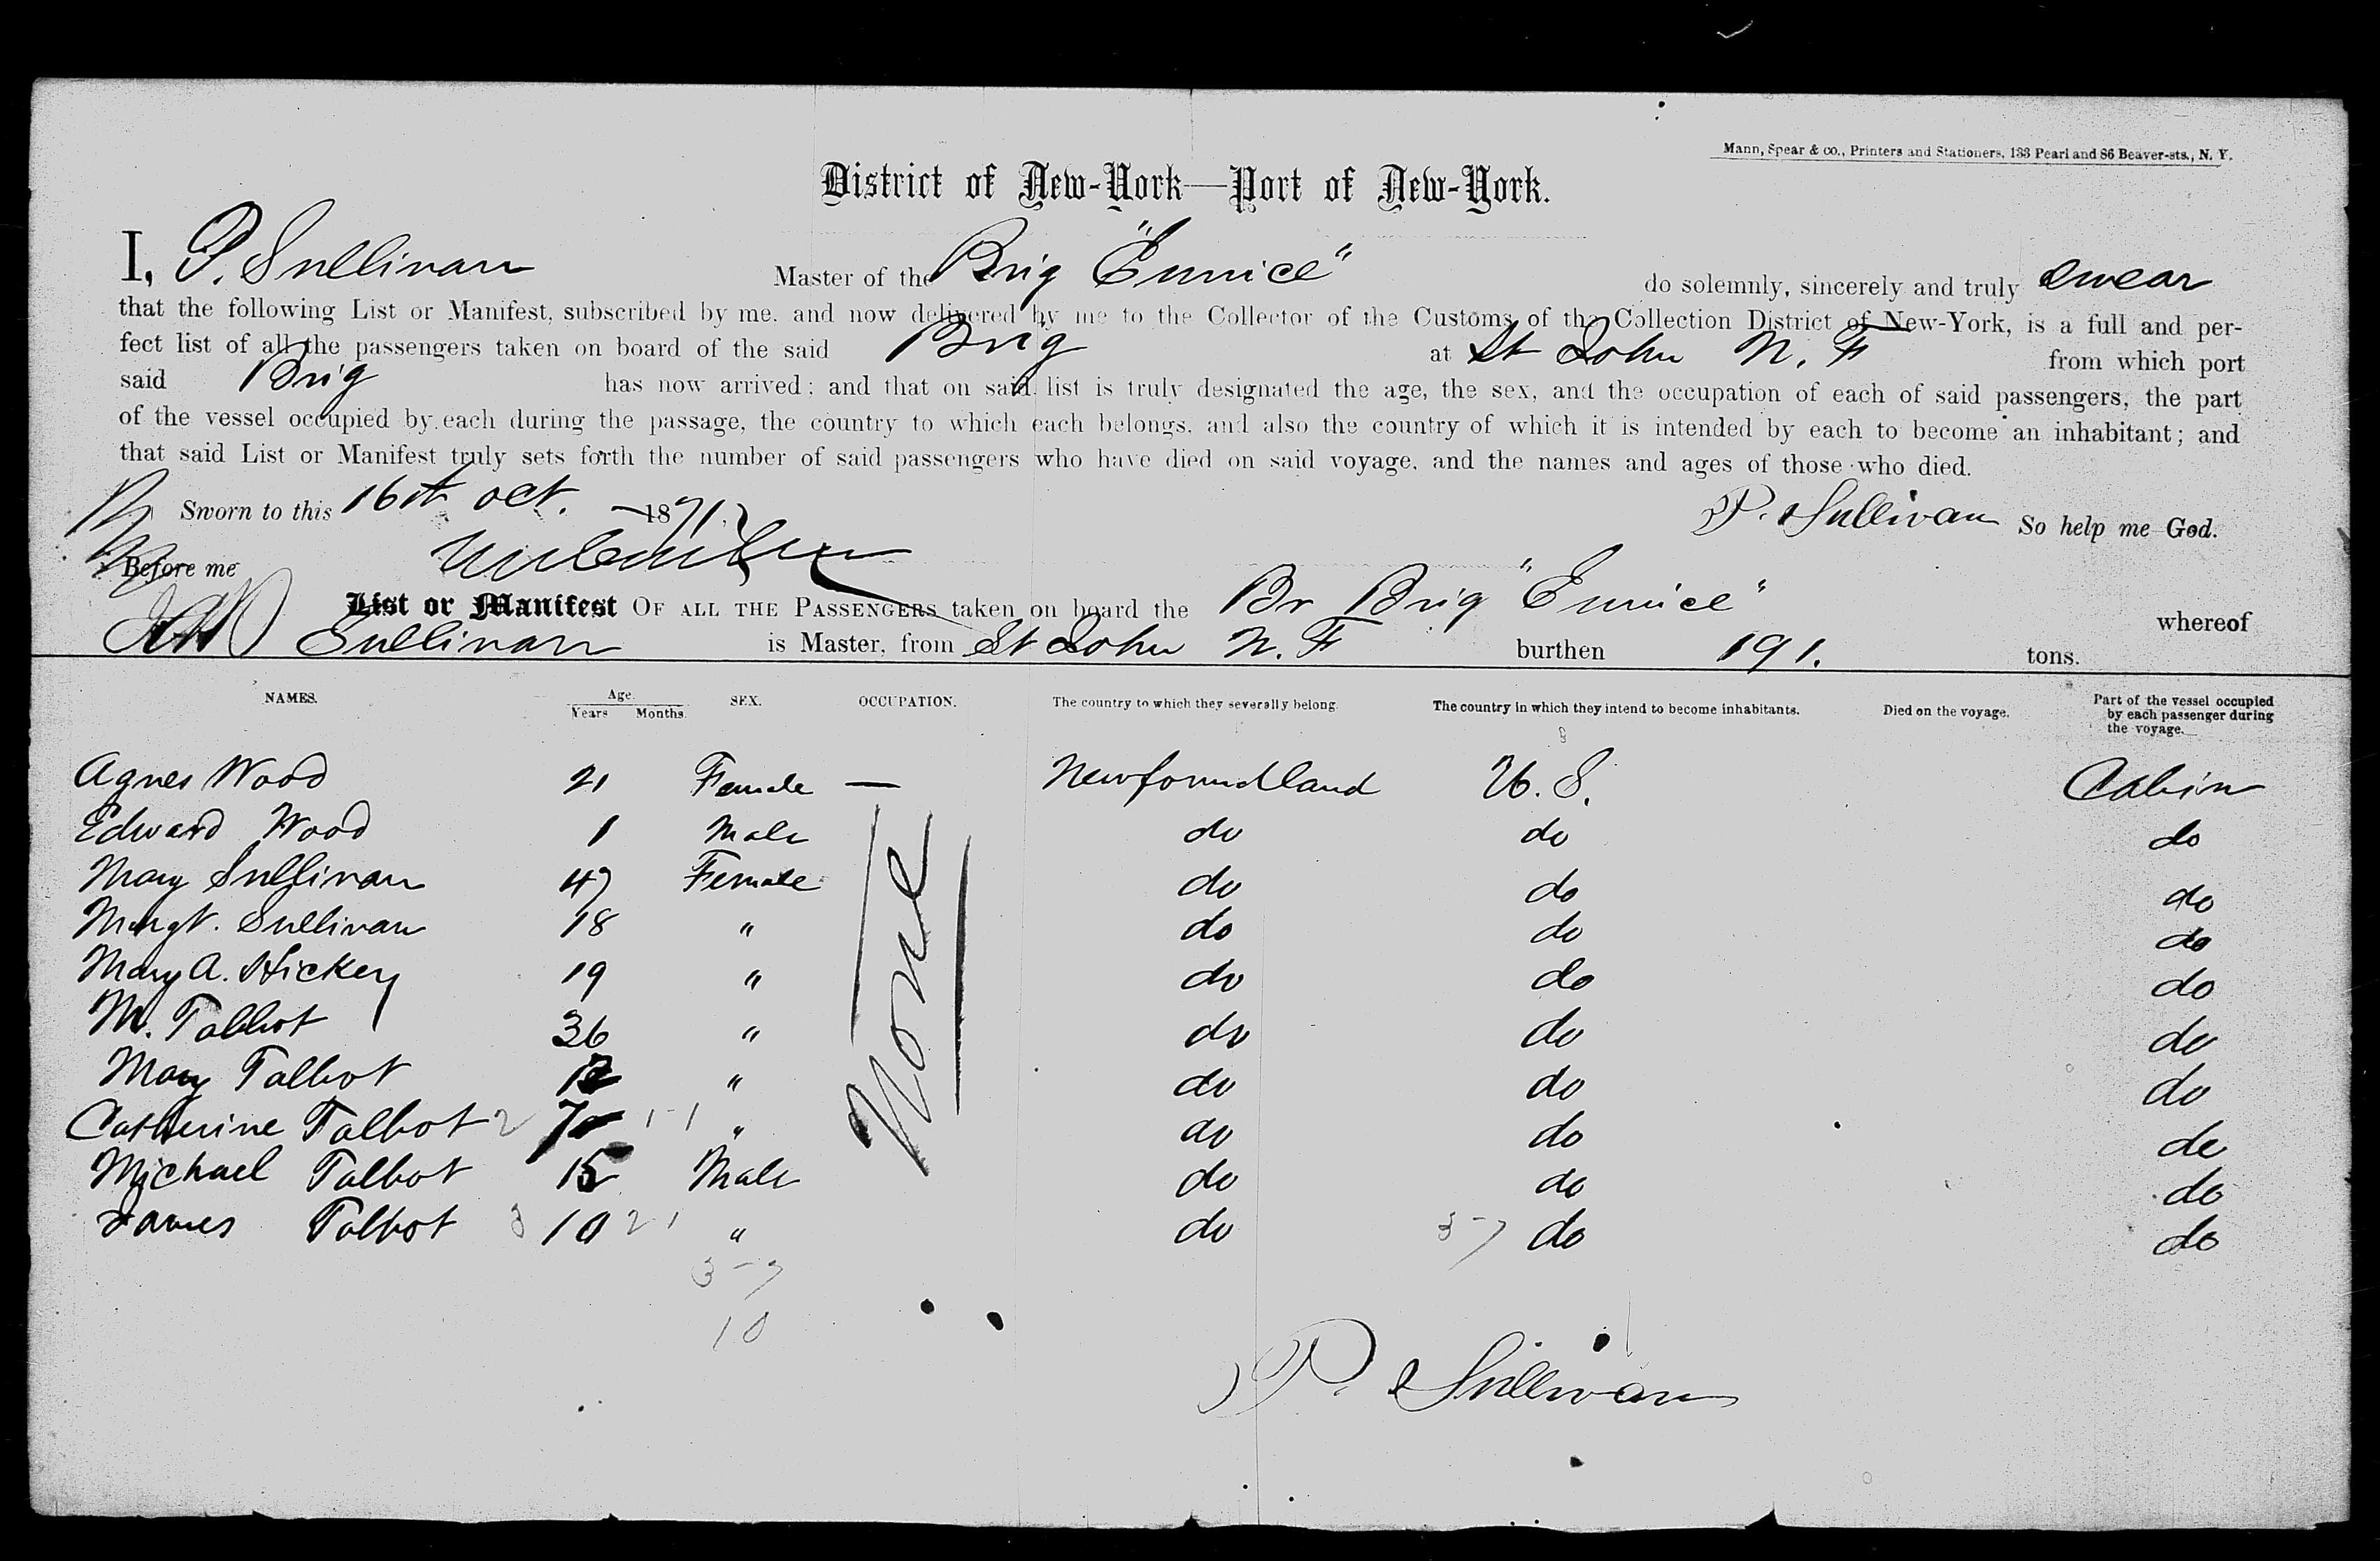 Mann, Spear & co., Printers and Stationers, 133 Pearl and 86 Beaver-sts., N. Y.
District of New-York—Port of New-York.
I, P. Sullivan Master of the Brig "Eunice" do solemnly, sincerely and truly swear
that the following List or Manifest, subscribed by me, and now delivered by me to the Collector of the Customs of the Collection District of New-York, is a full and per-
fect list of all the passengers taken on board of the said Brig at St John N. F from which port
said Brig has now arrived; and that on said list is truly designated the age, the sex, and the occupation of each of said passengers, the part
of the vessel occupied by each during the passage, the country to which each belongs, and also the country of which it is intended by each to become an inhabitant; and
that said List or Manifest truly sets forth the number of said passengers who have died on said voyage, and the names and ages of those who died.
Sworn to this 16th oct. 1871. P. Sullivan So help me God.
Before me
List or Manifest OF ALL THE PASSENGERS taken on board the Br Brig "Eunice" whereof
Sullivan is Master, from St John N. F burthen 191. tons.
NAMES. Age. Years Months. SEX. OCCUPATION. The country to which they severally belong. The country in which they intend to become inhabitants. Died on the voyage. Part of the vessel occupied by each passenger during the voyage.
Agnes Wood 21 Female — Newfoundland U. S. Cabin
Edward Wood 1 Male do do do
Mary Sullivan 47 Female do do do
Margt. Sullivan 18 " do do do
Mary A. Hickey 19 " do do do
M. Talbot 36 " do do do
Mary Talbot " do do do
Catherine Talbot 2 7 1-1 " do do do
Michael Talbot 15 Male do do do
James Talbot 3 10 2-1 " do 3-7 do do
None
3-7
10
P. Sullivan